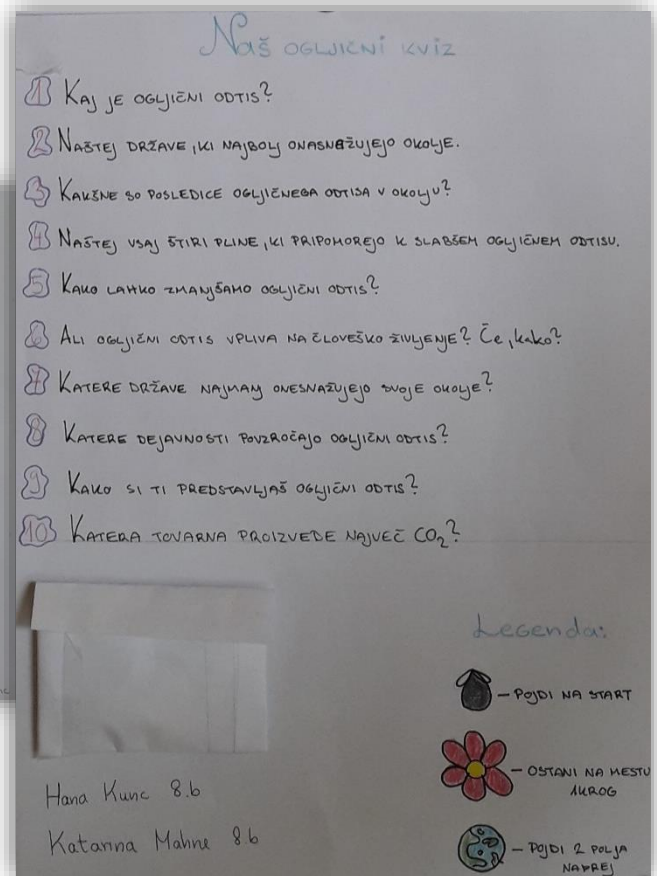 Naš OGLJIČNI KVIZ
1 KAJ JE OGLJIČNI ODTIS?
2 NAŠTEJ DRŽAVE, KI NAJBOLJ ONASNAŽUJEJO OKOLJE.
3 KAKŠNE SO POSLEDICE OGLJIČNEGA ODTISA V OKOLJU?
4 NAŠTEJ VSAJ ŠTIRI PLINE, KI PRIPOMOREJO K SLABŠEM OGLJIČNEM ODTISU.
5 KAKO LAHKO ZMANJŠAMO OGLJIČNI ODTIS?
6 ALI OGLJIČNI ODTIS VPLIVA NA ČLOVEŠKO ŽIVLJENJE? Če, kako?
7 KATERE DRŽAVE NAJMANJ ONESNAŽUJEJO SVOJE OKOLJE?
8 KATERE DEJAVNOSTI POVZROČAJO OGLJIČNI ODTIS?
9 KAKO SI TI PREDSTAVLJAŠ OGLJIČNI ODTIS?
10 KATERA TOVARNA PROIZVEDE NAJVEČ CO₂?
Legenda:
– POJDI NA START
– OSTANI NA MESTU
1KROG
– POJDI 2 POLJA
NAPREJ
Hana Kunc 8.b
Katarina Mahne 8.b